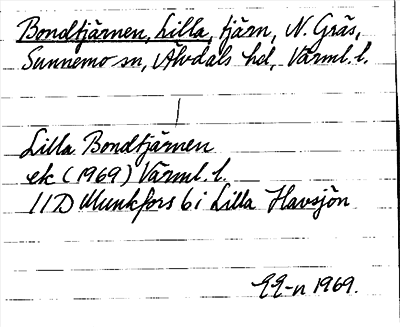 Bondtjärnen, Lilla, tjärn, N. Gräs,
Sunnemo sn, Älvdals hd, Värml. l.
Lilla Bondtjärnen
ek (1969) Värml. l.
11D Munkfors 6 i Lilla Havsjön
EE-n 1969.